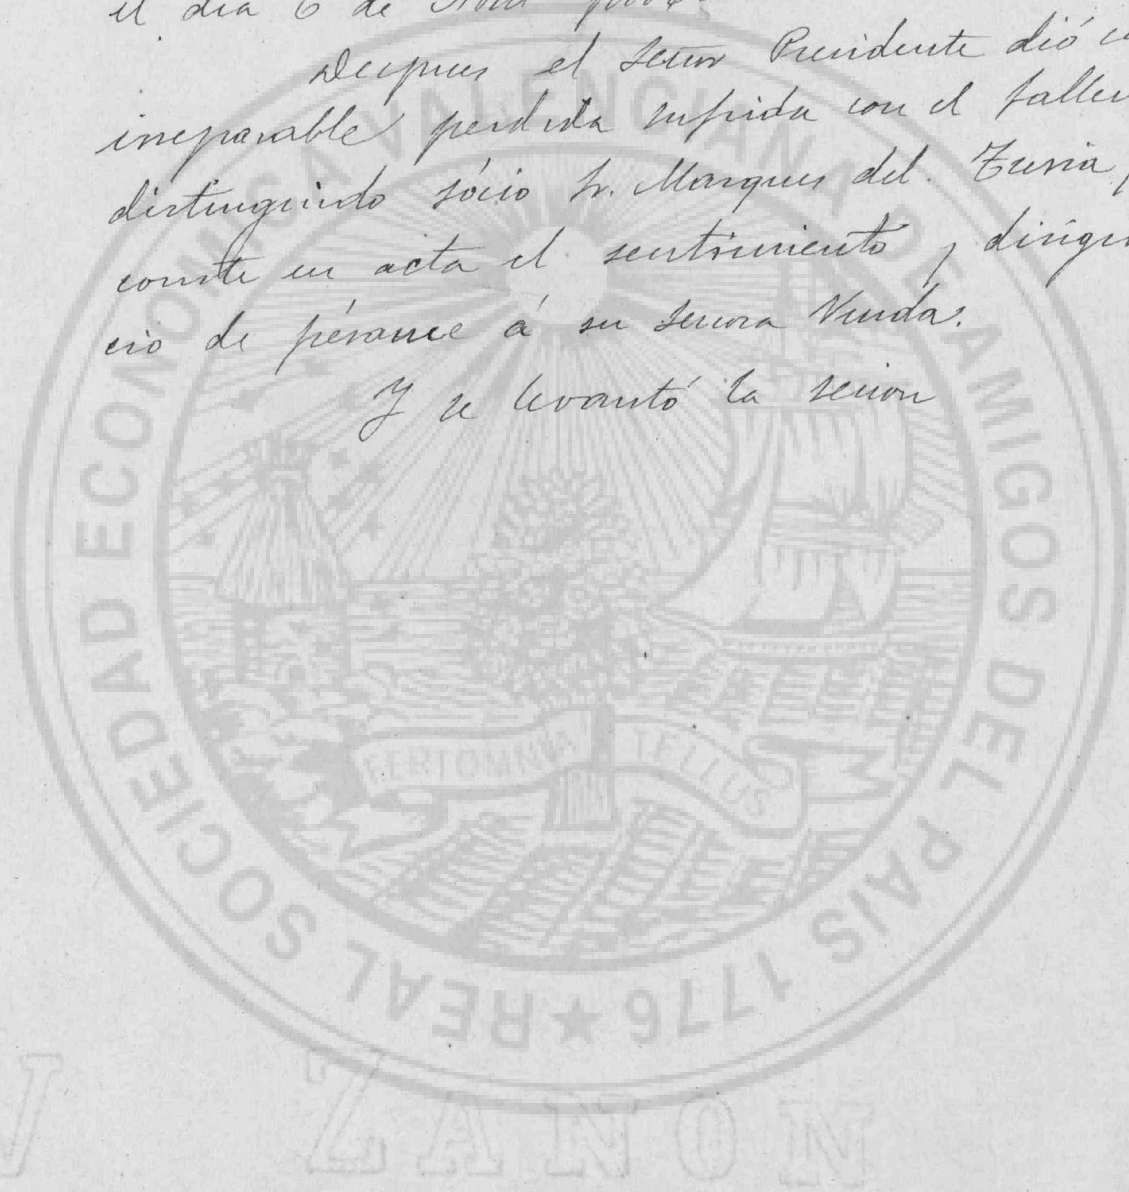 el dia 6 de
Despues el señor Presidente dió
irreparable perdida sufrida con el falleci
distinguido sócio Sr. Marques del Turia
conste en acta el sentimiento y dirigi
cio de pésame á su señora Viuda.
Y se levantó la sesion
REAL SOCIEDAD ECONOMICA VALENCIANA DE AMIGOS DEL PAIS 1776 ★
FERT OMNIA TELLUS
ZANON